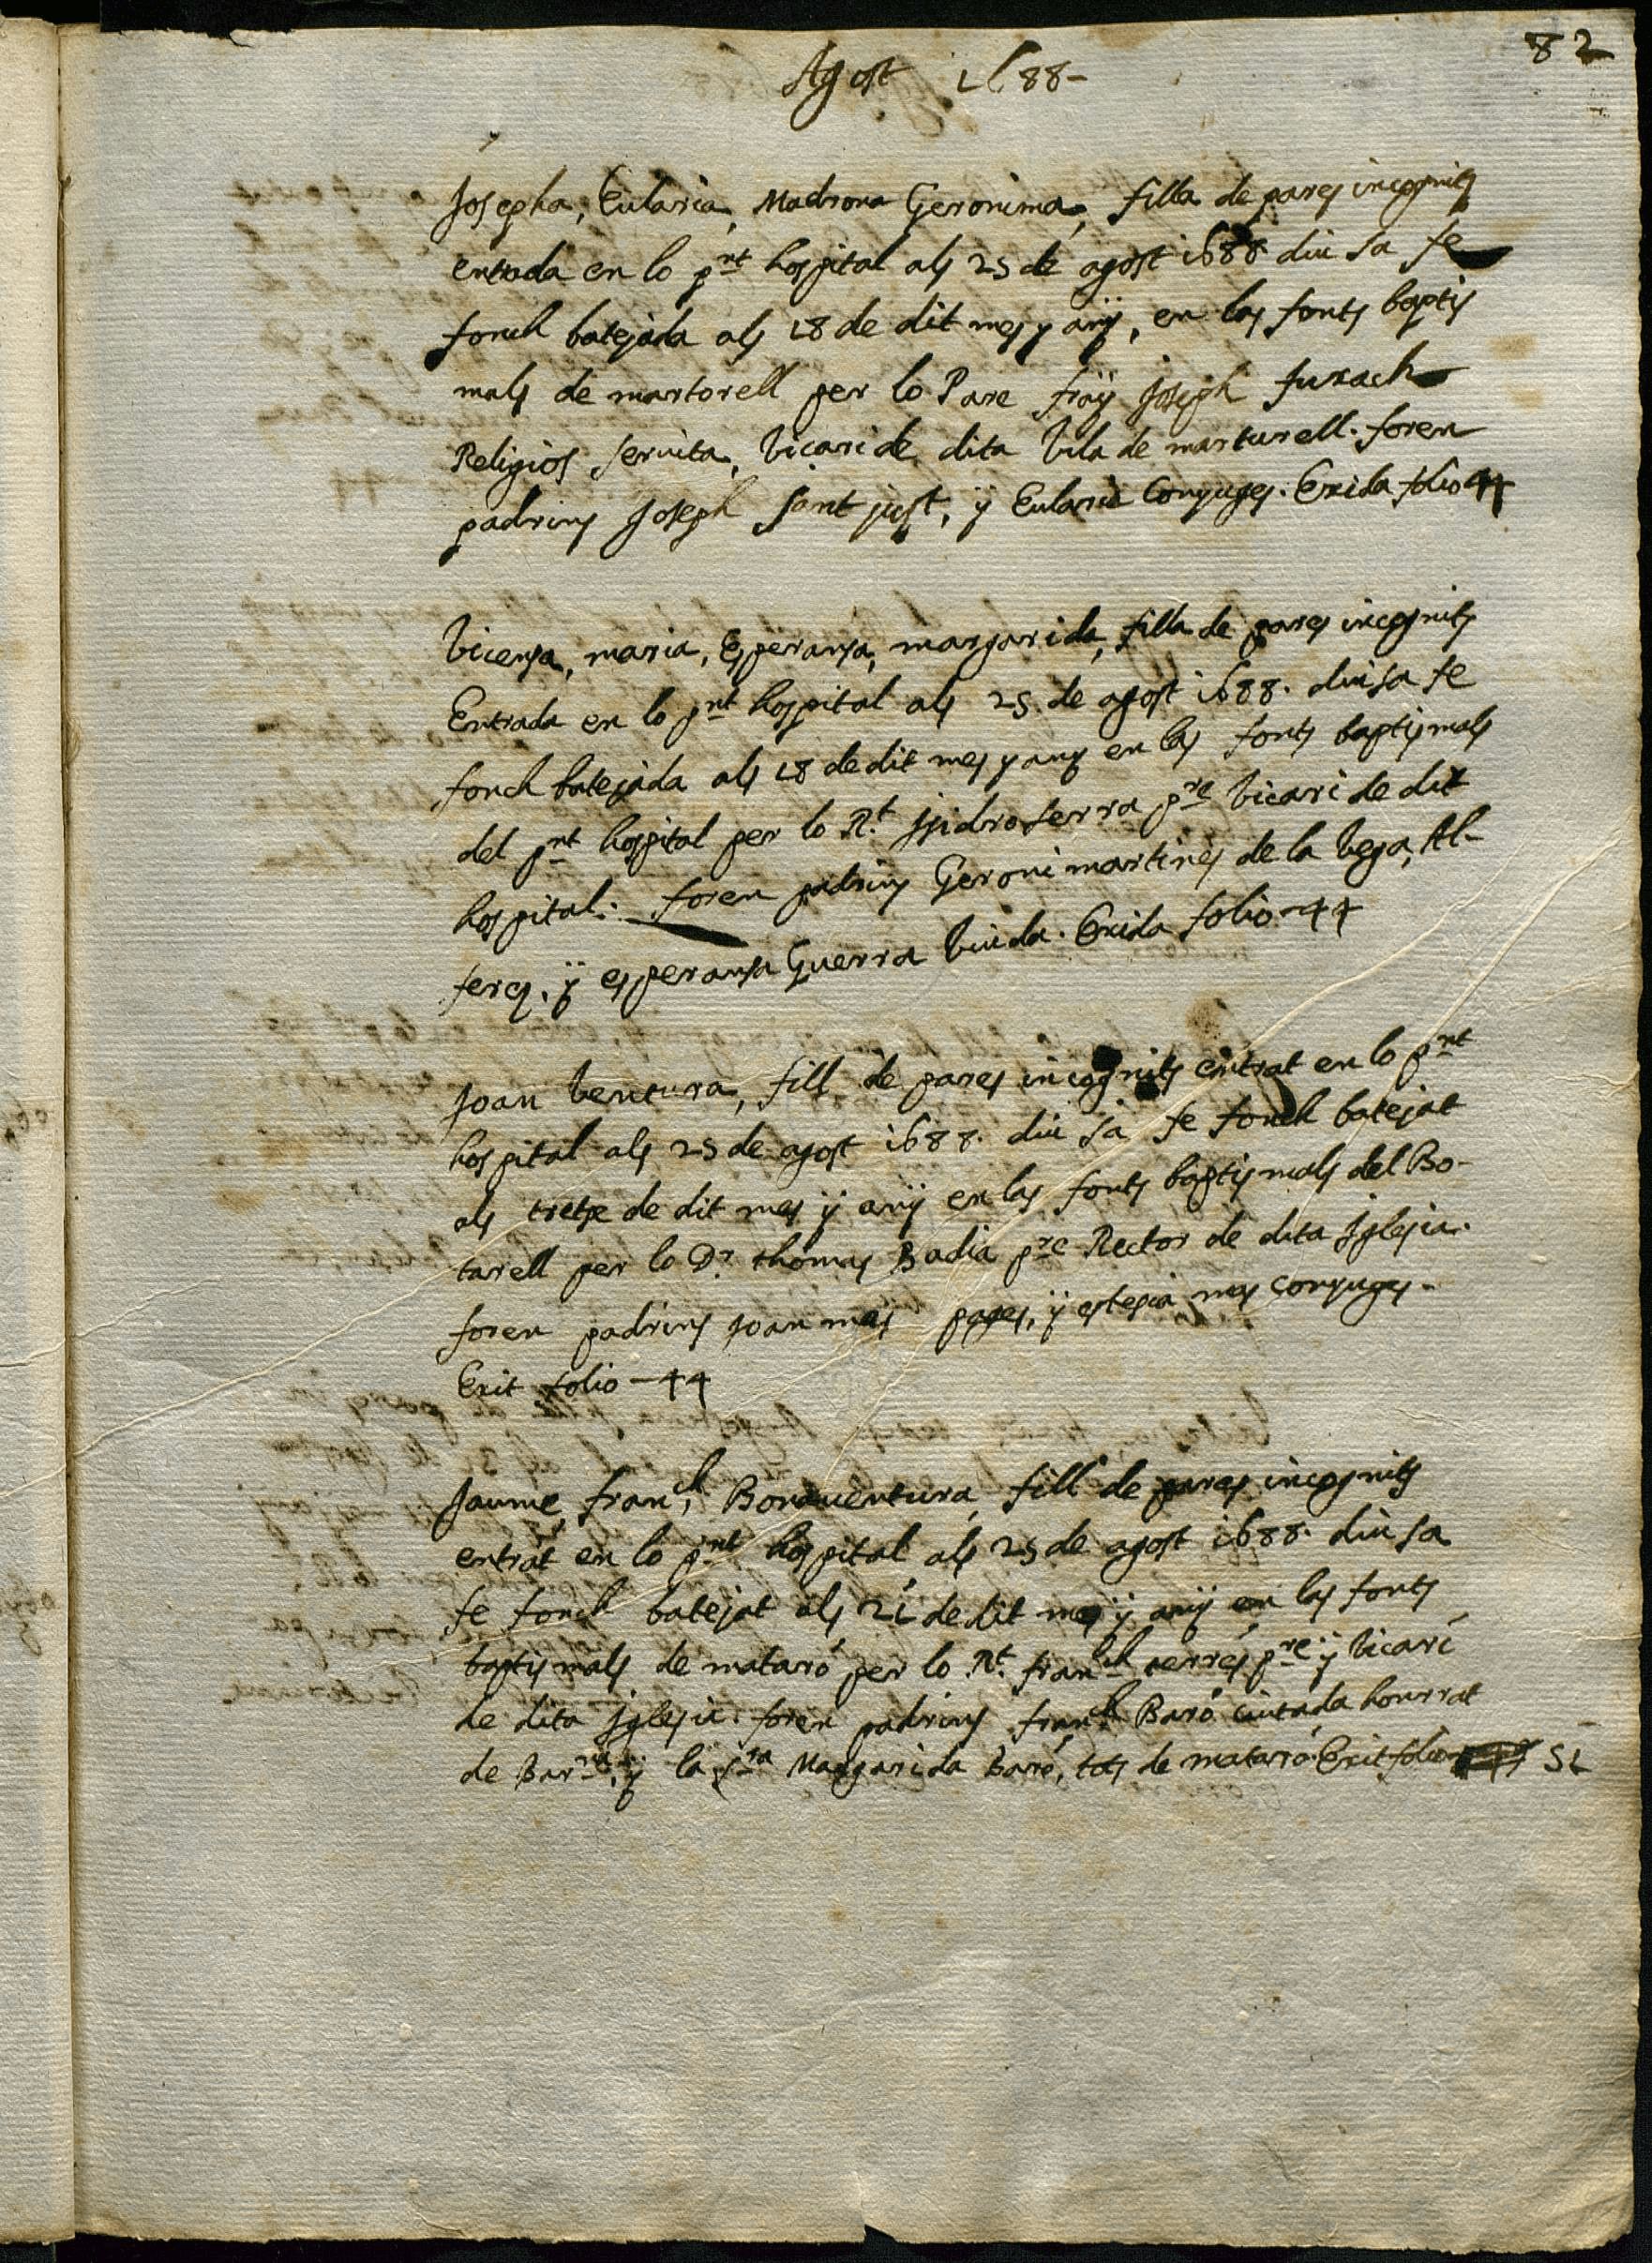 82
Agost 1688-
Josepha, Eularia, Madrona Geronima, filla de pares incognits
entrada en lo pnt hospital als 25 de agost 1688. diu sa fe
fonch batejada als 18 de dit mes y añÿ, en las fonts baptis
mals de martorell per lo Pare fraÿ Joseph Juxach
Religios servita, vicari de dita vila de marturell. foren
padrins Joseph Sant just, ÿ Eularia Conyuges. Exida folio 44
Vicensa, maria, Esperansa, margarida, filla de pares incognits
Entrada en lo pnt hospital als 25 de agost 1688. diu sa fe
fonch batejada als 18 de dit mes y any en las fonts baptismals
del pnt hospital per lo Rt Isidro Serra pre vicari de dit
hospital. foren padrins Geroni martines de la Vega, Al-
feres, ÿ esperansa Guerra viuda. Exida folio 44
Joan Ventura, fill de pares incognits entrat en lo pnt
hospital als 25 de agost 1688. diu sa fe fonch batejat
als tretse de dit mes ÿ anÿ en las fonts baptismals del Bo-
tarell per lo Dr thomas Badia pre Rector de dita Iglesia.
foren padrins Joan mas pages, ÿ estepia mas conyuges.
Exit folio - 44
Jaume, franch, Bonaventura, fill de pares incognits
entrat en lo pnt hospital als 25 de agost 1688. diu sa
fe fonch batejat als 21 de dit mes ÿ anÿ en las fonts
baptismals de mataró per lo Rt franch serrés pre ÿ vicari
de dita Iglesia. foren padrins franch Baró ciutada honrrat
de Barna, ÿ la sra Margarida Baró, tots de mataró. Exit folio 51